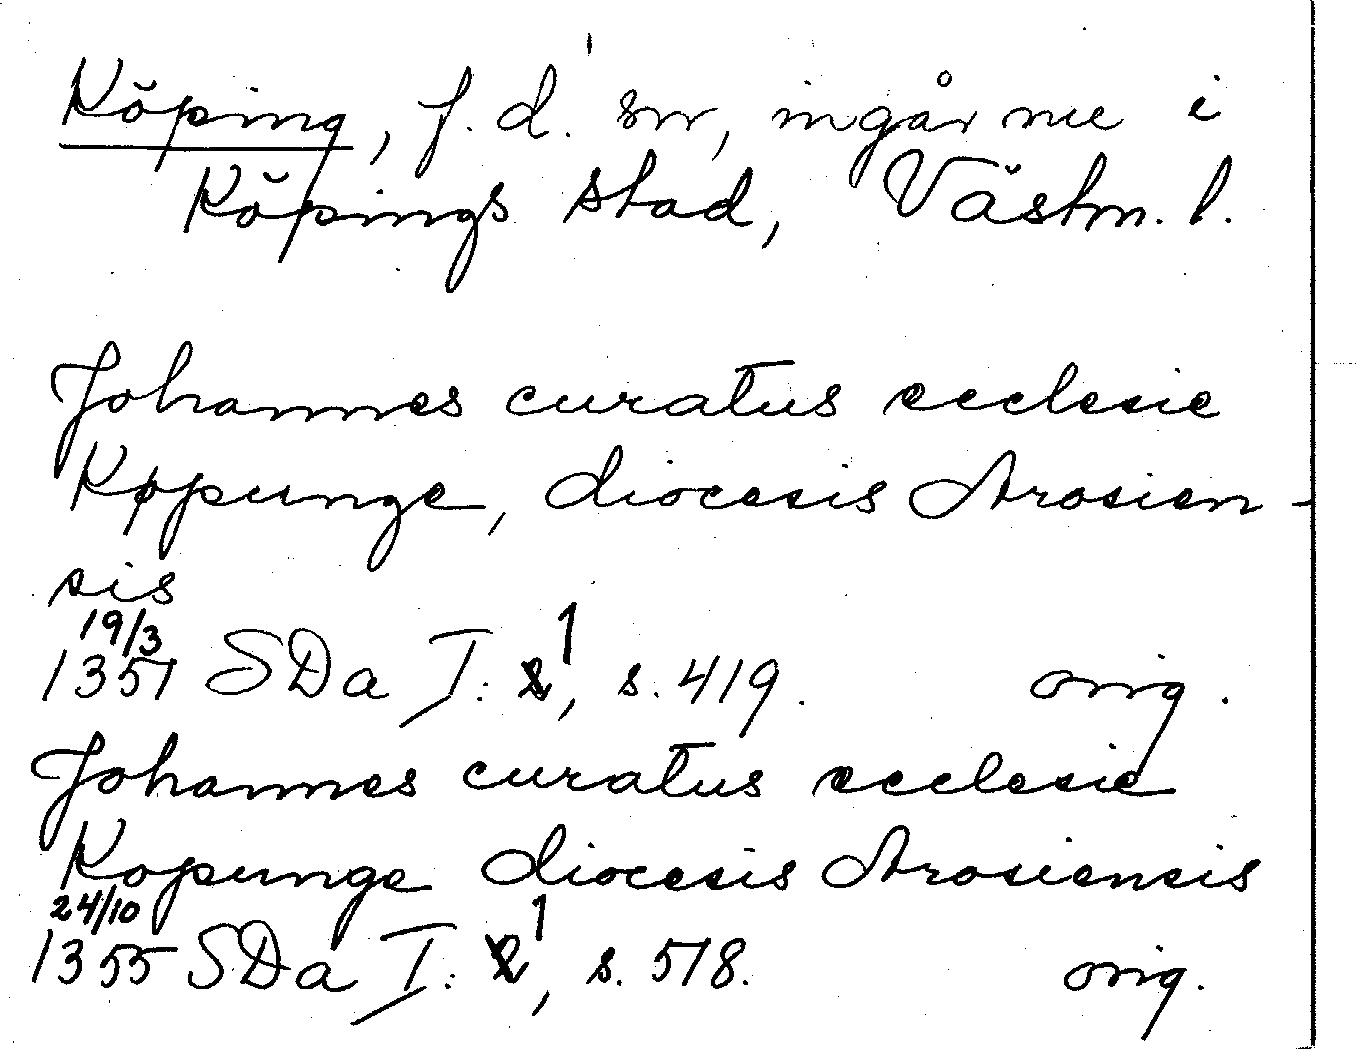 Köping, f.d. sn, ingår nu i
Köpings stad, Västm. l.
Johannes curatus ecclesie
Køpunge, diocesis Arosien-
sis
19/3
1351 SDa I: 1, s. 419. orig.
Johannes curatus ecclesie
Kopunge diocesis Arosiensis
24/10
1355 SDa I: 1, s. 518. orig.